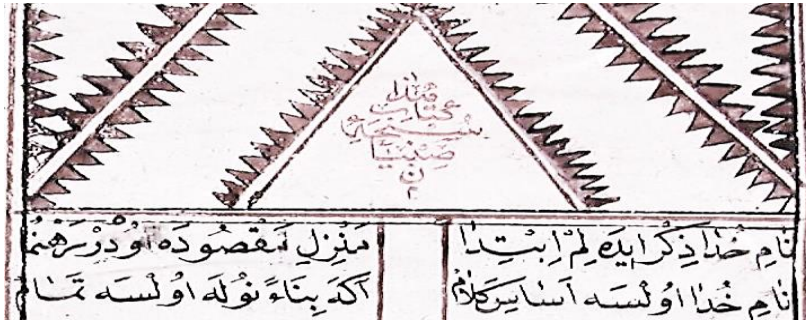 هٰذَا
كتاب
سُبْحَهٔ
صِبْيَا
ن
نَامِ خُدَا ذِكْرْ ايدَه لِمْ اِبْتِدَا مَنْزِلِ مَقْصُودَه اُودُرْ رَهْنُمَا
نَامِ خُدَا اولْسَه اَسَاسِ كَلَامْ اَكَه بِنَاءً نُولَه اولْسَه تَمَامْ